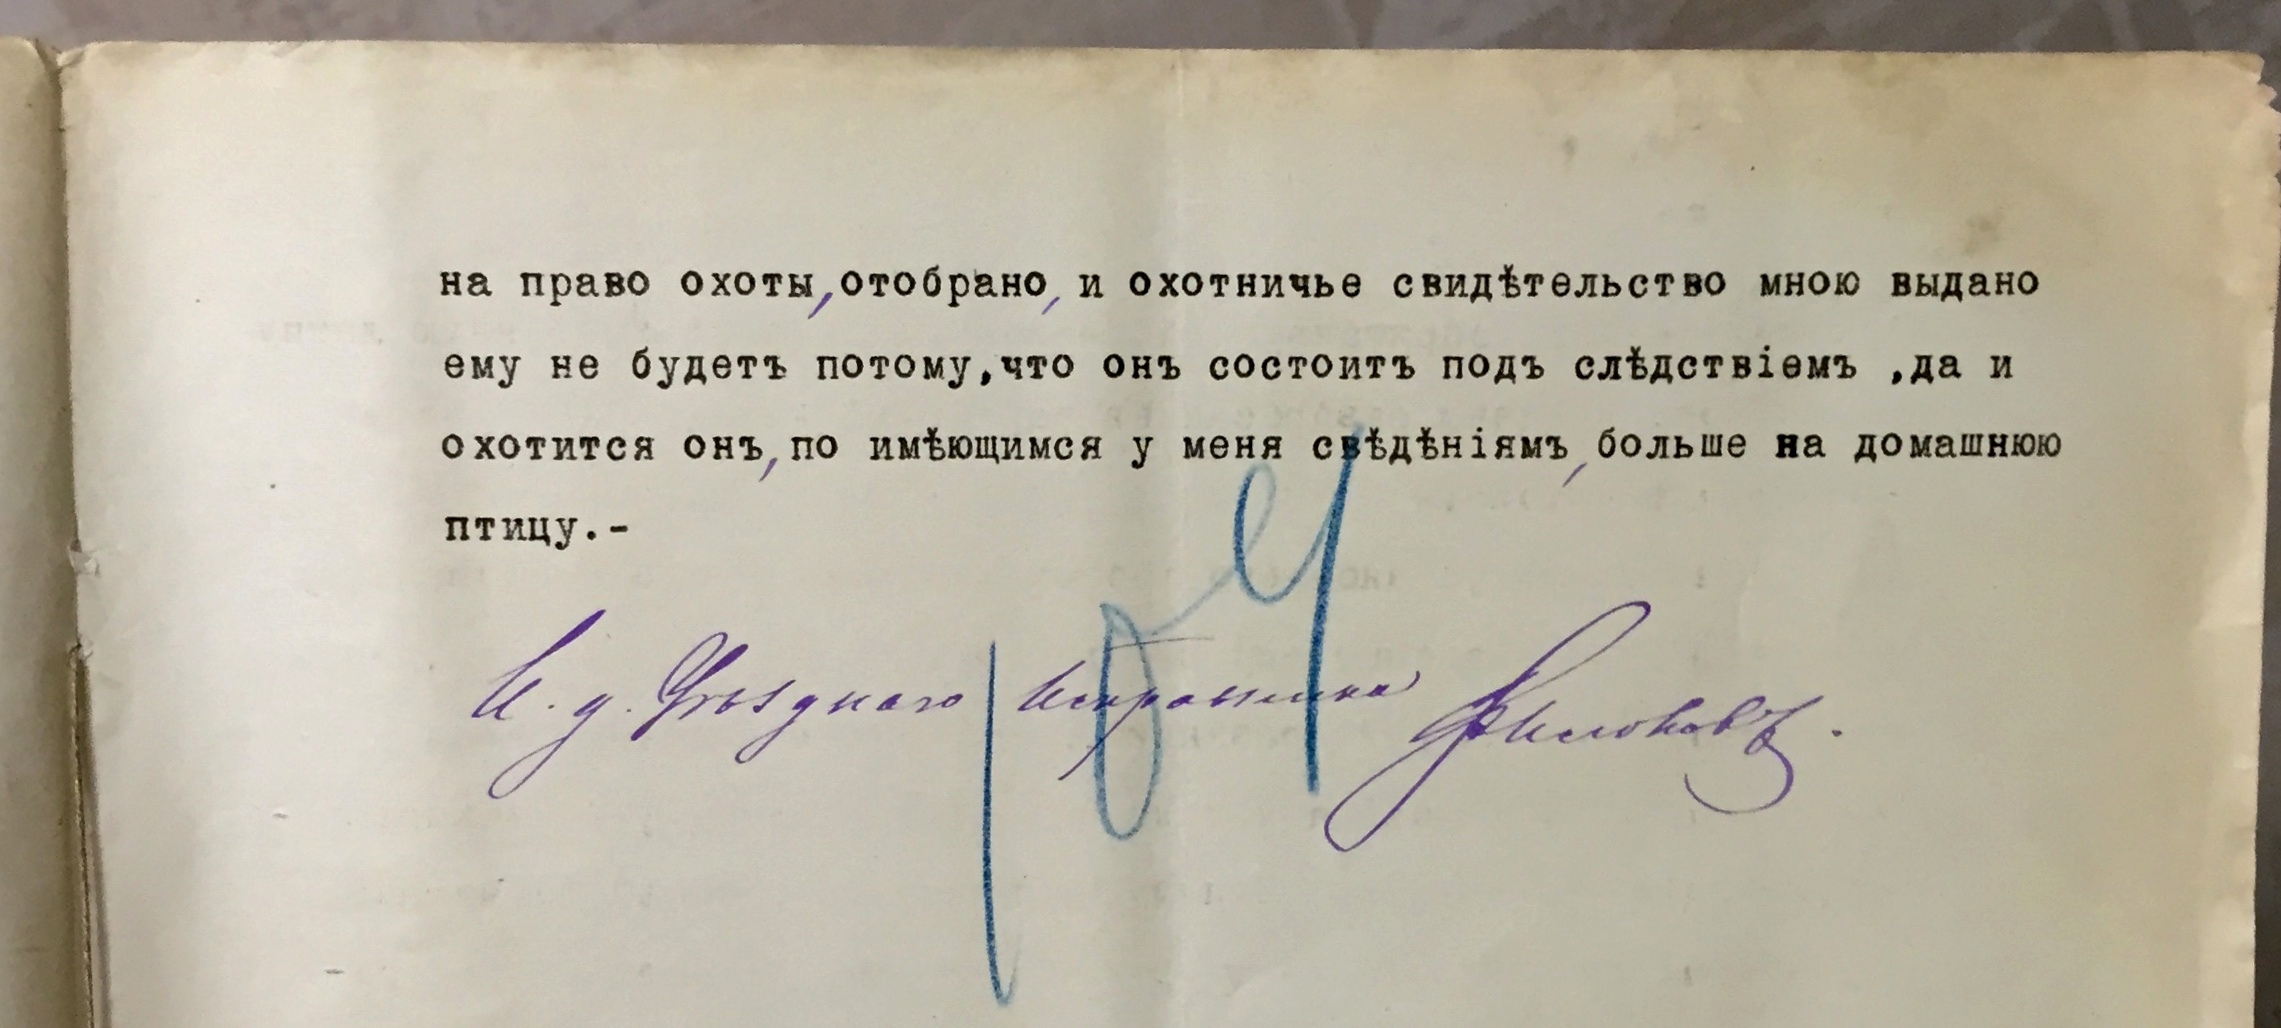 на право охоты, отобрано, и охотничье свидѣтельство мною выдано
ему не будетъ потому, что онъ состоитъ подъ слѣдствіемъ ,да и
охотится онъ, по имѣющимся у меня свѣдѣніямъ, больше на домашнюю
птицу.-
И. д. Уѣзднаго Исправника